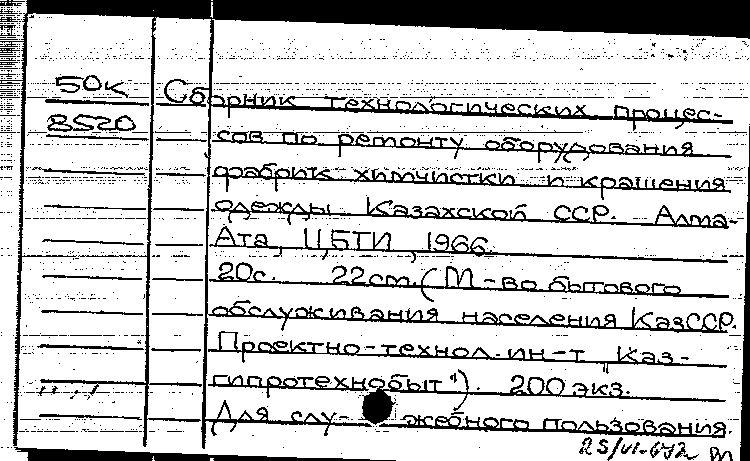 50к Сборник технологических процес-
8520 сов по ремонту оборудования
фабрик химчистки и крашения
одежды Казахской ССР. Алма-
Ата, ЦБТИ, 1966.
20с. 22cm. (М-во бытового
обслуживания населения КазССР.
Проектно-технол. ин-т "Каз-
гипротехнобыт"). 200 экз.
Для слу- жебного пользования.